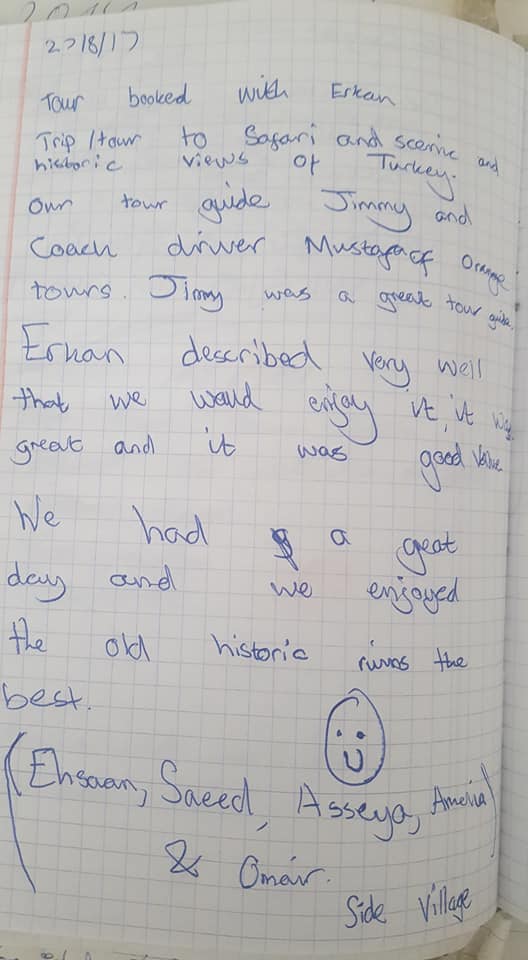 27/8/17
Tour booked with Erkan
Trip / tour to Safari and scenic and
historic views of Turkey.
Our tour guide Jimmy and
Coach driver Mustafa of Orange
tours. Jimmy was a great tour guide.
Erkan described very well
that we would enjoy it, it was
great and it was good value
We had a great
day and we enjoyed
the old historic ruins the
best.
(Ehsaan, Saeed, Asseya, Amelia)
& Omair.
Side Village